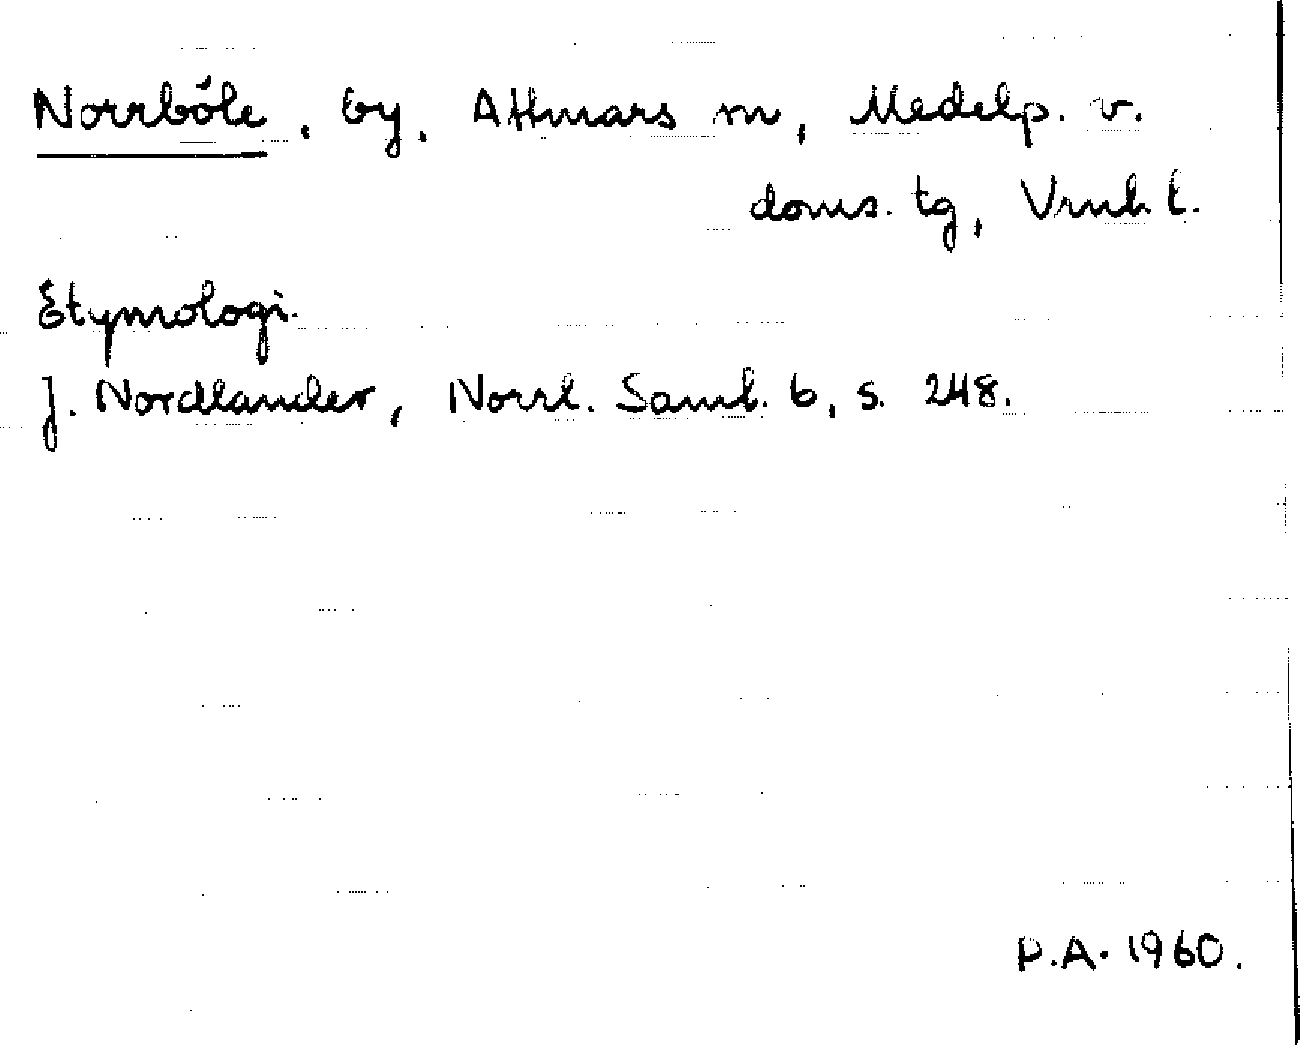 Norrböle, by, Attmars sn, Medelp. v.
doms. tg, Vrnl. l.
Etymologi.
J. Nordlander, Norrl. Saml. 6, s. 248.
P.A. 1960.